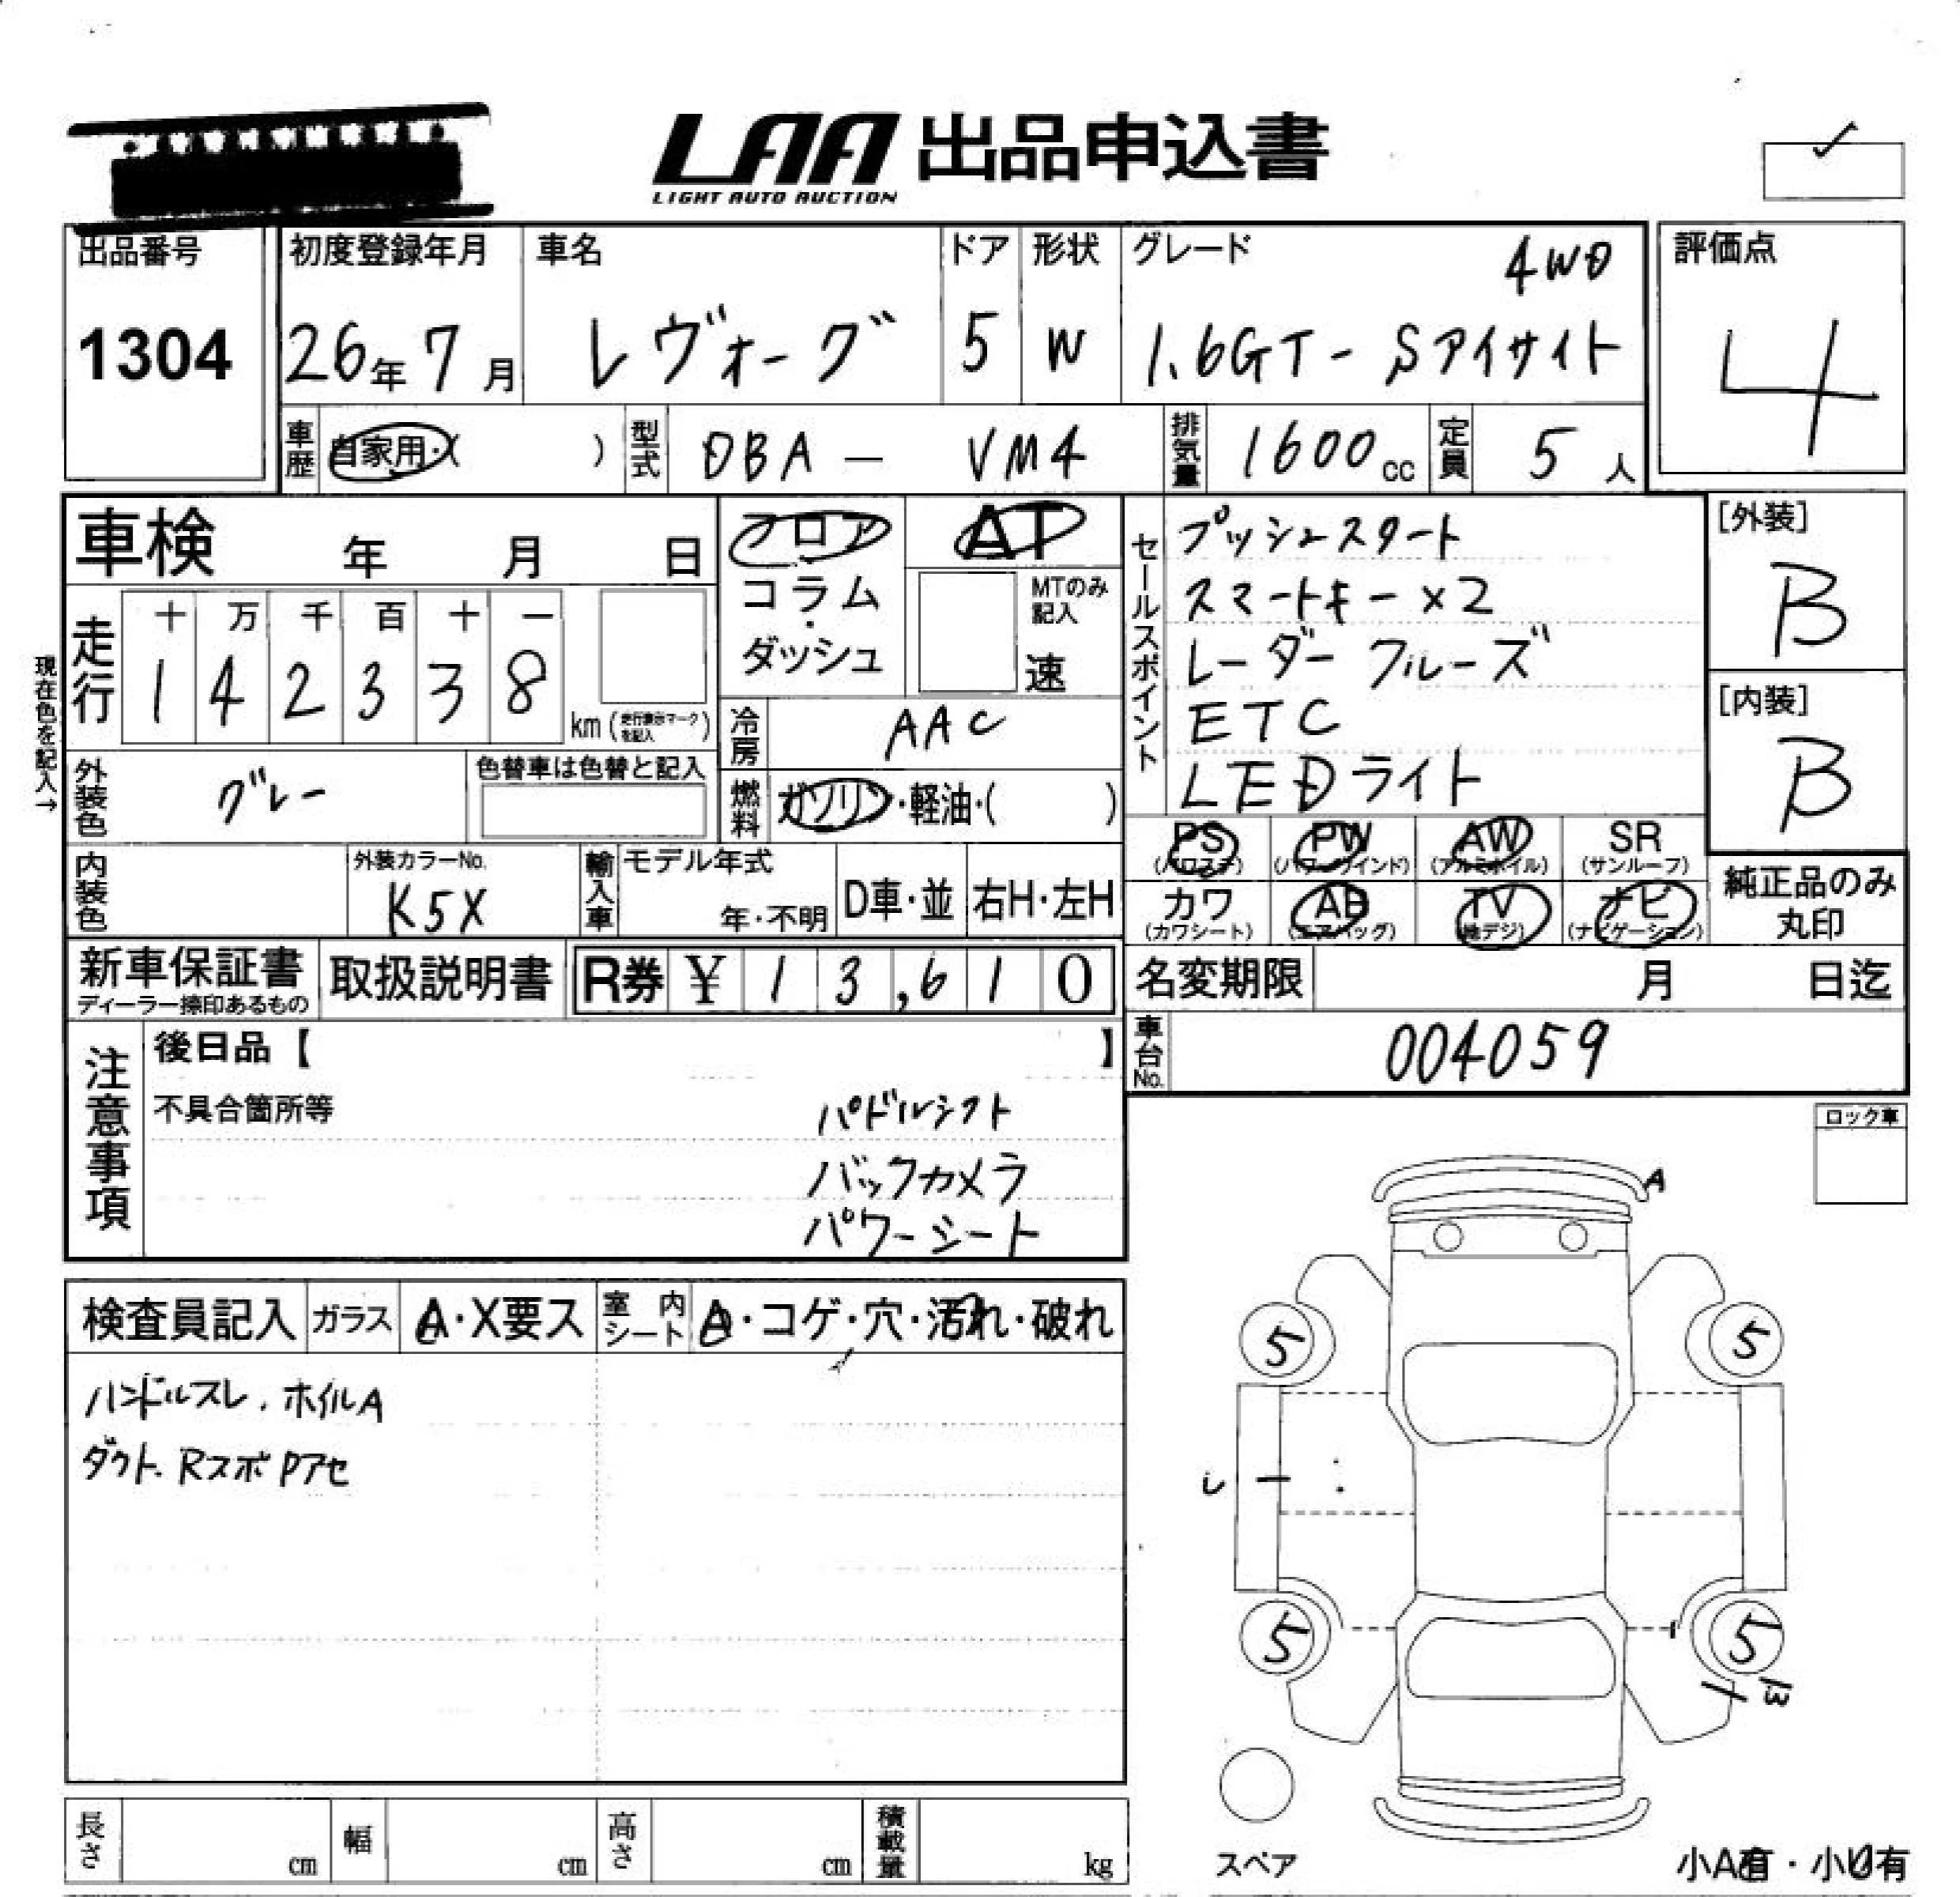 LAA 出品申込書
LIGHT AUTO AUCTION
出品番号
1304
初度登録年月
26年7月
車名
レヴォーグ
ドア
5
形状
W
グレード
4WD
1.6GT-Sアイサイト
評価点
4
車歴
自家用・( )
型式
DBA - VM4
排気量
1600cc
定員
5人
車検 年 月 日
フロア
コラム・
ダッシュ
AT
MTのみ
記入
速
走行
十 万 千 百 十 一
1 4 2 3 3 8
km(走行表示マークを記入)
現在色を記入→
冷房
AAC
燃料
ガソリン・軽油・( )
外装色
グレー
色替車は色替と記入
内装色
外装カラーNo.
K5X
輸入車
モデル年式
年・不明
D車・並
右H・左H
セールスポイント
プッシュスタート
スマートキー×2
レーダークルーズ
ETC
LEDライト
[外装]
B
[内装]
B
PS
(パワステ)
PW
(パワーウインド)
AW
(アルミホイル)
SR
(サンルーフ)
カワ
(カワシート)
AB
(エアバッグ)
TV
(地デジ)
ナビ
(ナビゲーション)
純正品のみ
丸印
新車保証書
ディーラー捺印あるもの
取扱説明書
R券 ¥ 13,610
名変期限 月 日迄
車台No.
004059
注意事項
後日品【 】
不具合箇所等
パドルシフト
バックカメラ
パワーシート
ロック車
検査員記入
ガラス
A・X要ス
室内シート
A・コゲ・穴・汚れ・破れ
ハンドルスレ、ホイルA
ダクト、RスポPアセ
A
5 5
レ
5 5
スペア
長さ cm
幅 cm
高さ cm
積載量 kg
小A有・小U有